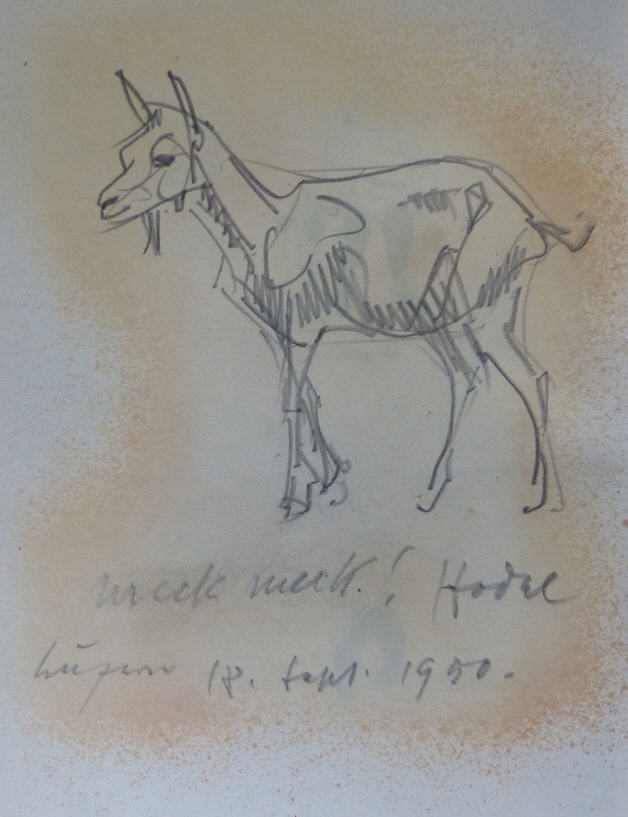 meck meck! Hodel
Luzern 18. Sept. 1950.